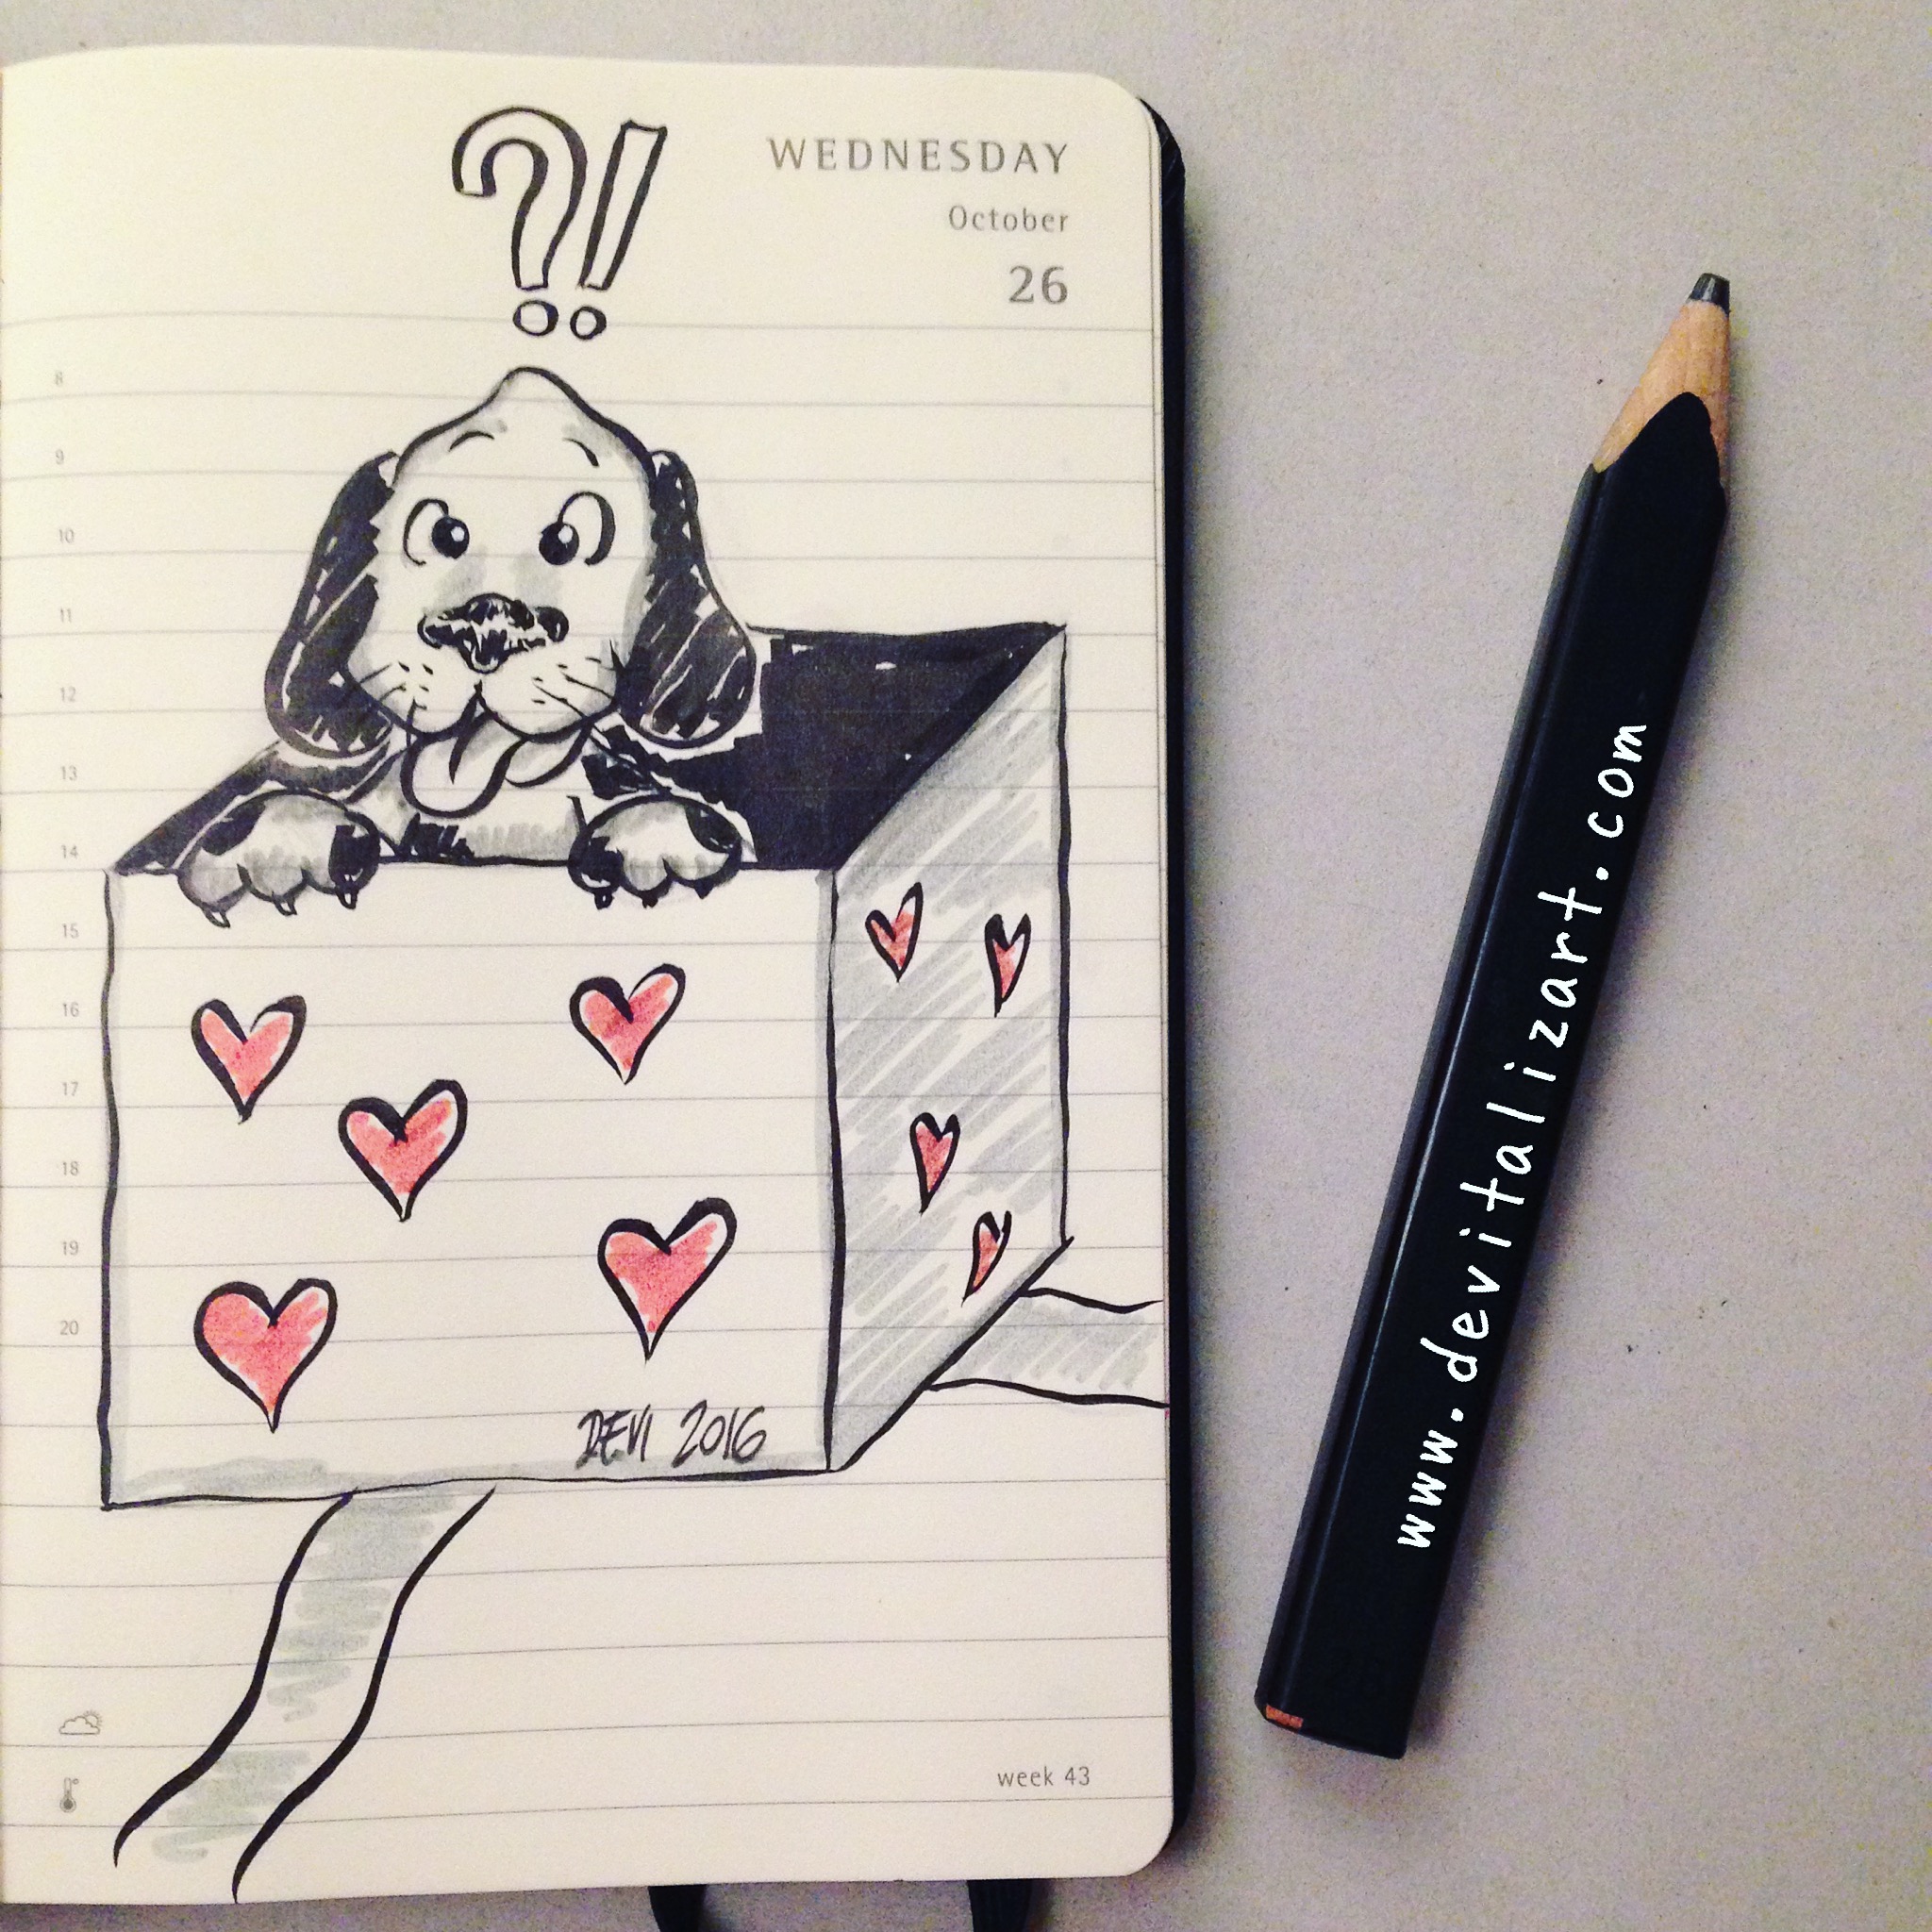 ?!
WEDNESDAY
October
26
8
9
10
11
12
13
14
15
16
17
18
19
20
DEVI 2016
week 43
www.devitalizart.com